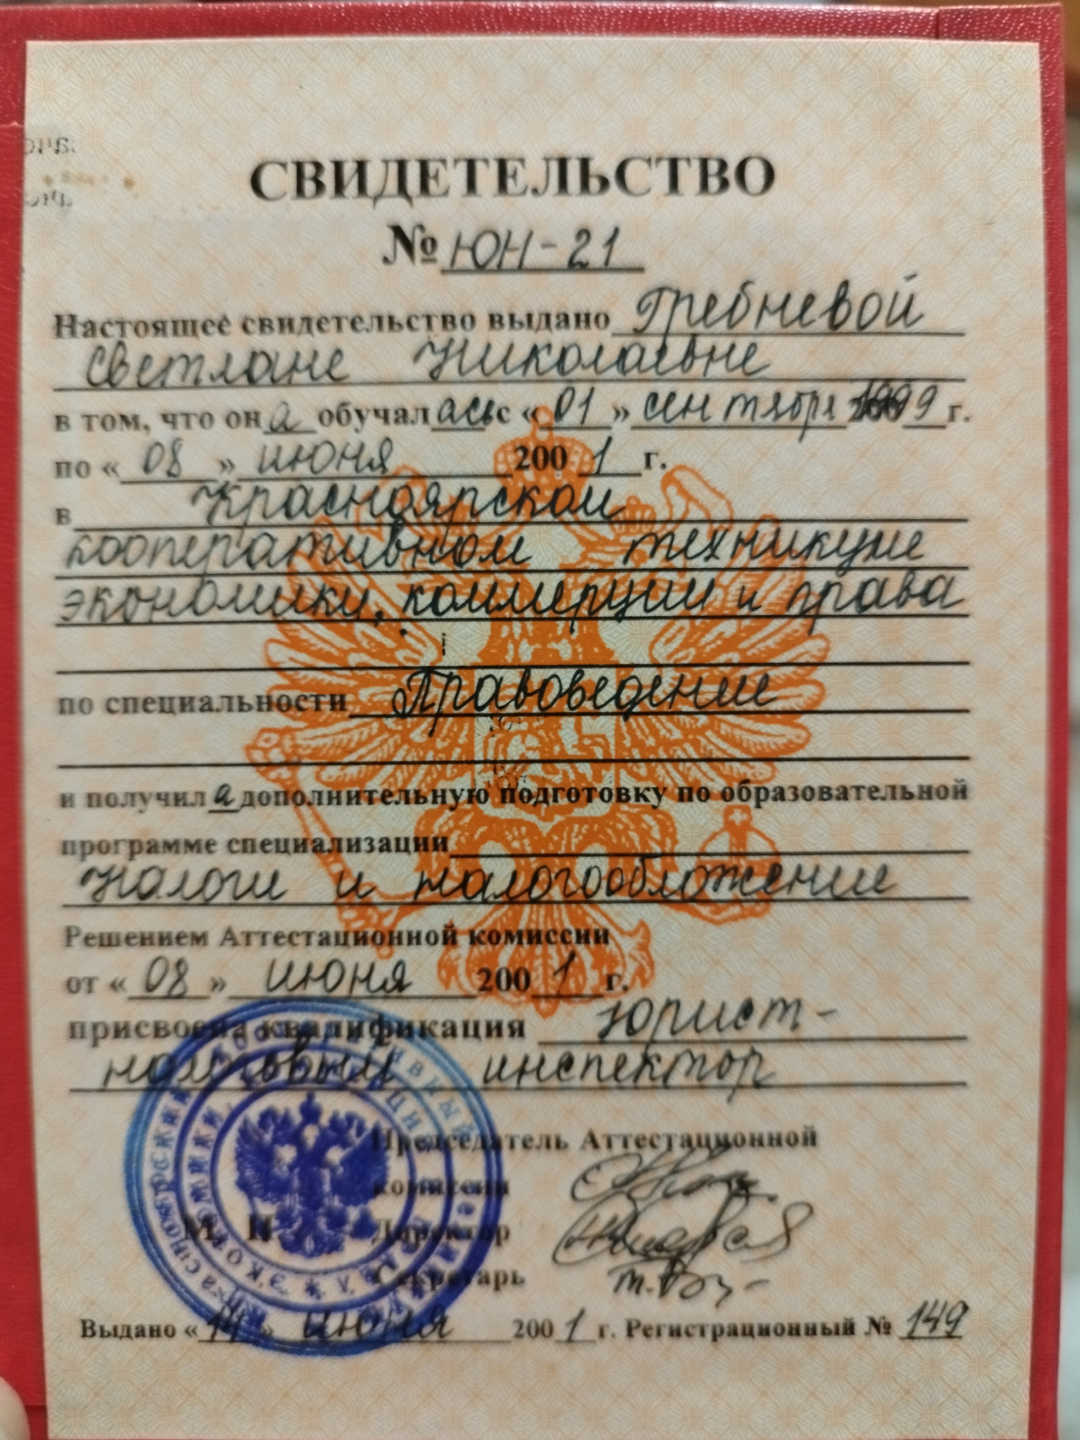 СВИДЕТЕЛЬСТВО
№ ЮН-21
Настоящее свидетельство выдано Гребневой
Светлане Николаевне
в том, что он а обучал ась с « 01 » сентября 1999 г.
по « 08 » июня 200 1 г.
в Красноярском
кооперативном техникуме
экономики, коммерции и права
по специальности Правоведение
и получил а дополнительную подготовку по образовательной
программе специализации
Налоги и налогообложение
Решением Аттестационной комиссии
от « 08 » июня 200 1 г.
присвоена квалификация юрист-
налоговый инспектор
Председатель Аттестационной
комиссии
М. П. Директор
Секретарь
Выдано « 14 » июня 200 1 г. Регистрационный № 149